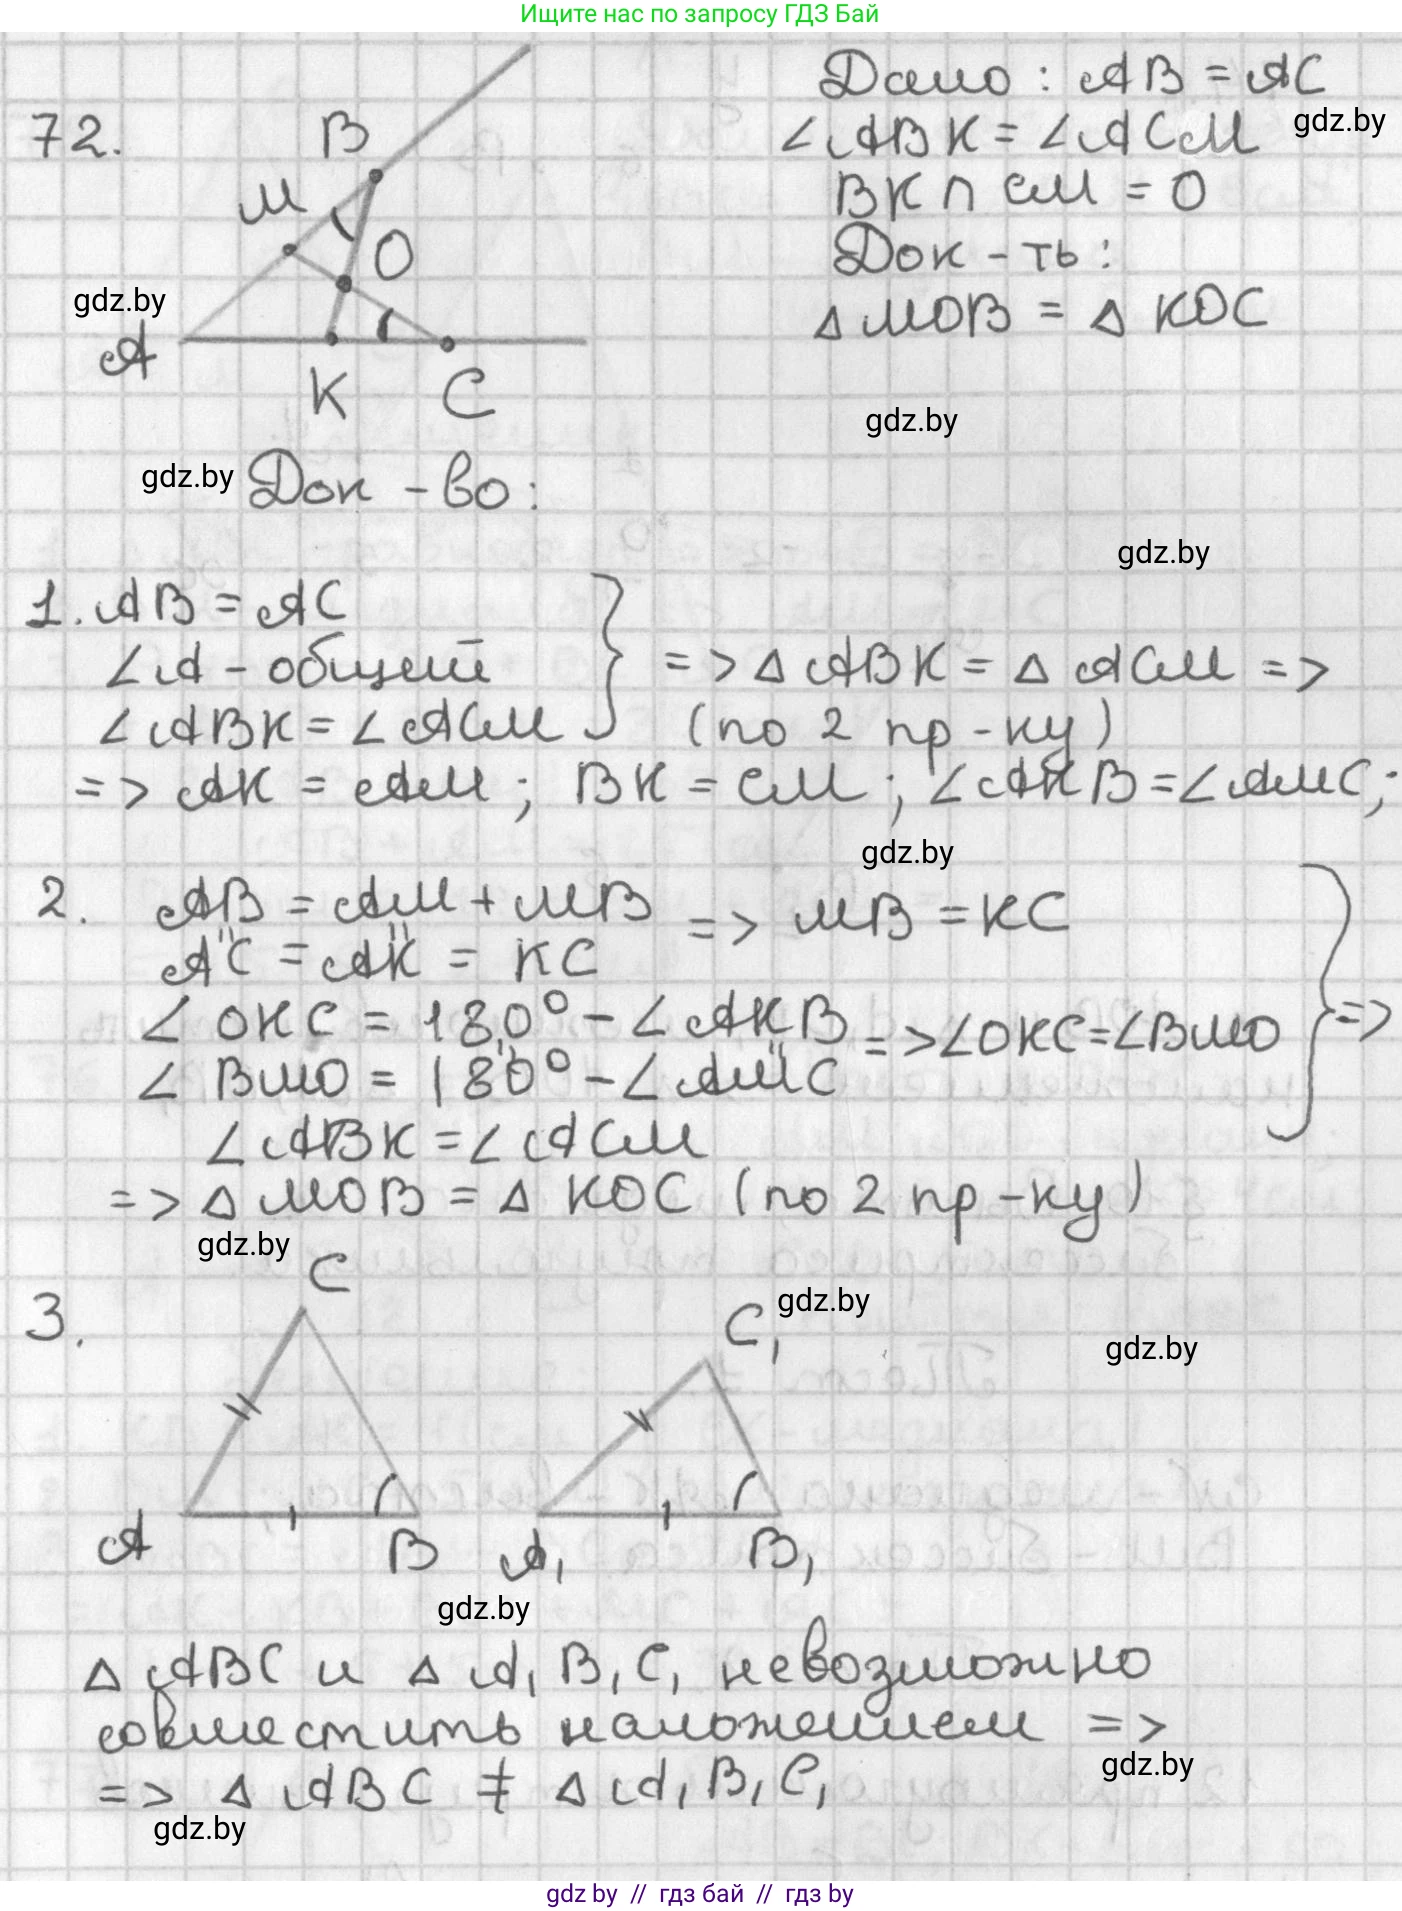 Ищите нас по запросу ГДЗ Бай
72.
B
M
O
A
K
C
Дано: AB = AC
∠ABK = ∠ACM
BK ∩ CM = O
Док-ть:
△ MOB = △ KOC
gdz.by
gdz.by
gdz.by
gdz.by
Док-во:
gdz.by
1. AB = AC
∠A - общий
∠ABK = ∠ACM
=> △ ABK = △ ACM =>
(по 2 пр-ку)
=> AK = AM; BK = CM; ∠AKB = ∠AMC;
gdz.by
2. AB = AM + MB
AC = AK = KC
=> MB = KC
∠ OKC = 180° - ∠AKB
∠ BMO = 180° - ∠AMC
=> ∠OKC = ∠BMO
=>
∠ABK = ∠ACM
=> △ MOB = △ KOC (по 2 пр-ку)
gdz.by
3.
C
A
B
C₁
A₁
B₁
gdz.by
gdz.by
gdz.by
△ ABC и △ A₁B₁C₁ невозможно
совместить наложением =>
gdz.by
=> △ ABC ≠ △ A₁B₁C₁
gdz.by
gdz by // гдз бай // гдз by